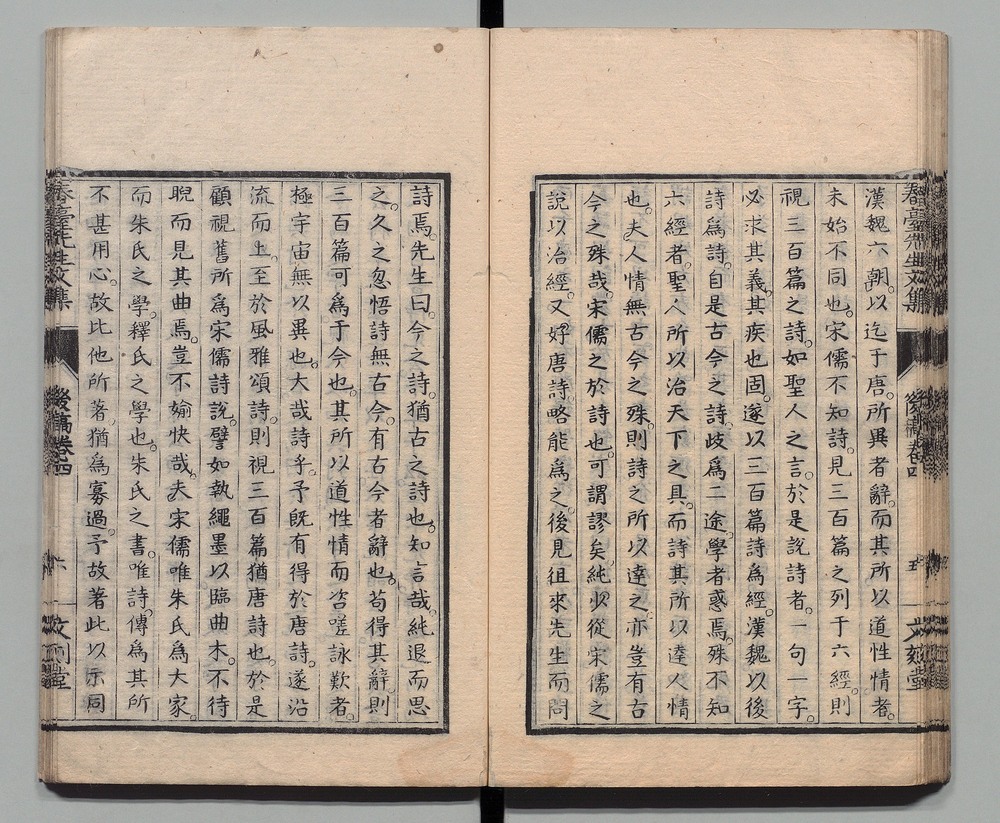 漢魏六朝。以迄于唐。所異者辭。而其所以道性情者。
未始不同也。宋儒不知詩。見三百篇之列于六經。則
視三百篇之詩。如聖人之言。於是說詩者。一句一字。
必求其義。其疾也固。遂以三百篇詩爲經。漢魏以後
詩爲詩。自是古今之詩。歧爲二途。學者惑焉。殊不知
六經者。聖人所以治天下之具。而詩其所以達人情
也。夫人情無古今之殊。則詩之所以達之。亦豈有古
今之殊哉。宋儒之於詩也。可謂謬矣。純少從宋儒之
說以治經。又好唐詩。略能爲之。後見徂來先生而問
詩焉。先生曰。今之詩。猶古之詩也。知言哉。純退而思
之。久之忽悟詩無古今。有古今者辭也。苟得其辭。則
三百篇可爲于今也。其所以道性情而咨嗟詠歎者。
極宇宙無以異也。大哉詩乎。予既有得於唐詩。遂沿
流而上。至於風雅頌詩。則視三百篇猶唐詩也。於是
顧視舊所爲宋儒詩說。譬如執繩墨以臨曲木。不待
睨而見其曲焉。豈不愉快哉。夫宋儒唯朱氏爲大家。
而朱氏之學。釋氏之學也。朱氏之書。唯詩。傳爲其所
不甚用心。故比他所著。猶爲寡過。予故著此以示同
春臺先生文集
後稿卷四
五
文刻堂
春臺先生文集
後稿卷四
六